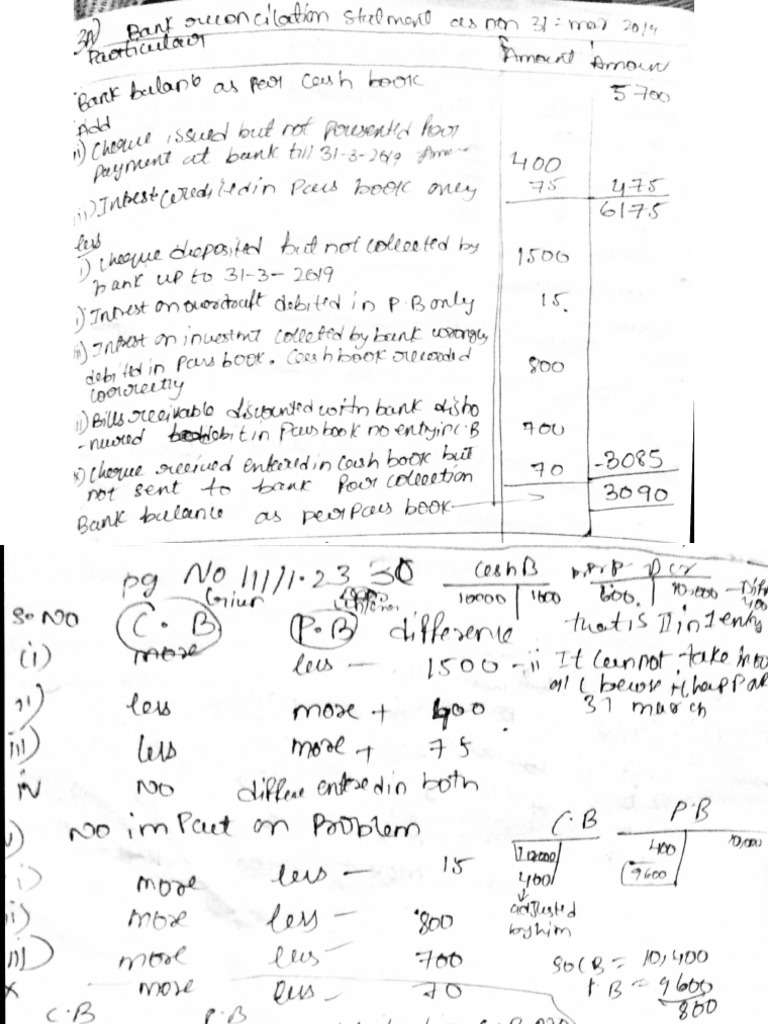 3A) Bank reconcilation statement as on 31-mar 2019
Particular Amount Amount
Bank balanc as per Cash book 5700
Add
ii) Cheque issued but not presented for
payment at bank till 31-3-2019 400
iii) Intrest Credited in Pass book only 75 475
6175
less
i) Cheque deposited but not collected by
bank up to 31-3-2019 1500
Intrest on overdraft debited in P.B only 15.
Intrest on investmt collected by bank wrongly
debited in Pass book. Cash book recorded
correctly 800
Bills receivable discounted with bank disho
-nured debit in Passbook no entry in C.B 700
x) Cheque received entered in Cash book but
not sent to bank for collection 70 -3085
Bank balance as per Pass book 3090
pg No 11/1.23 30 Cash B
Given 10000 10,000
S.No C.B P.B difference that is II in 1 entry
(i) more less - 1500 -ii It cannot take into
ii) less more + 400 31 march
iii) less more + 75
iv No differe entred in both
v) No impact on Problem C.B P.B
i) more less - 15 400 10,000
400 9600
ii) more less - 800 adjusted
by him
iii) more less 700 so CB = 10,400
x more less - 70 PB = 9600
C.B P.B 800